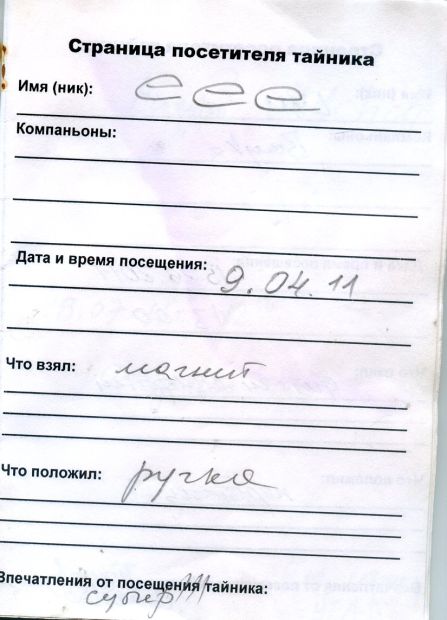 Страница посетителя тайника
Имя (ник): еее
Компаньоны:
Дата и время посещения: 9.04.11
Что взял: магнит
Что положил: ручка
Впечатления от посещения тайника:
супер!!!